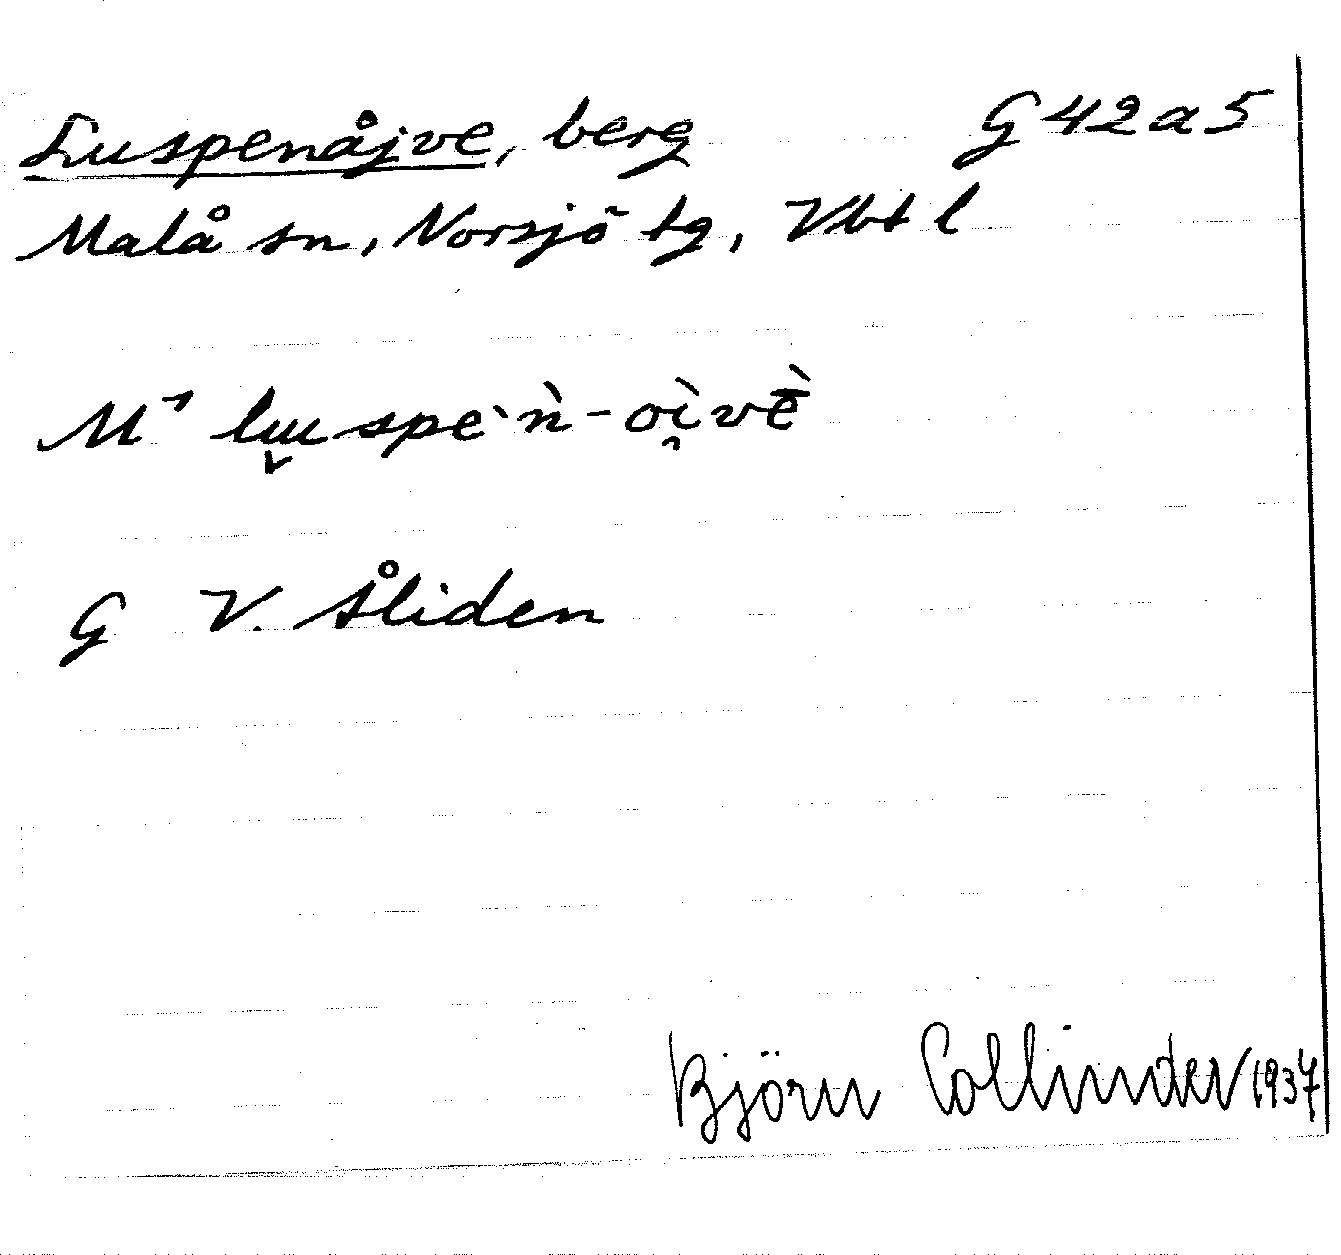 Luspenåjve, berg G42a5
Malå sn, Norsjö tg, Vbt l
M⁊ lɯ̬spe`ǹ-oì̯vḕ
G V. Åliden
Björn Collinder 1937